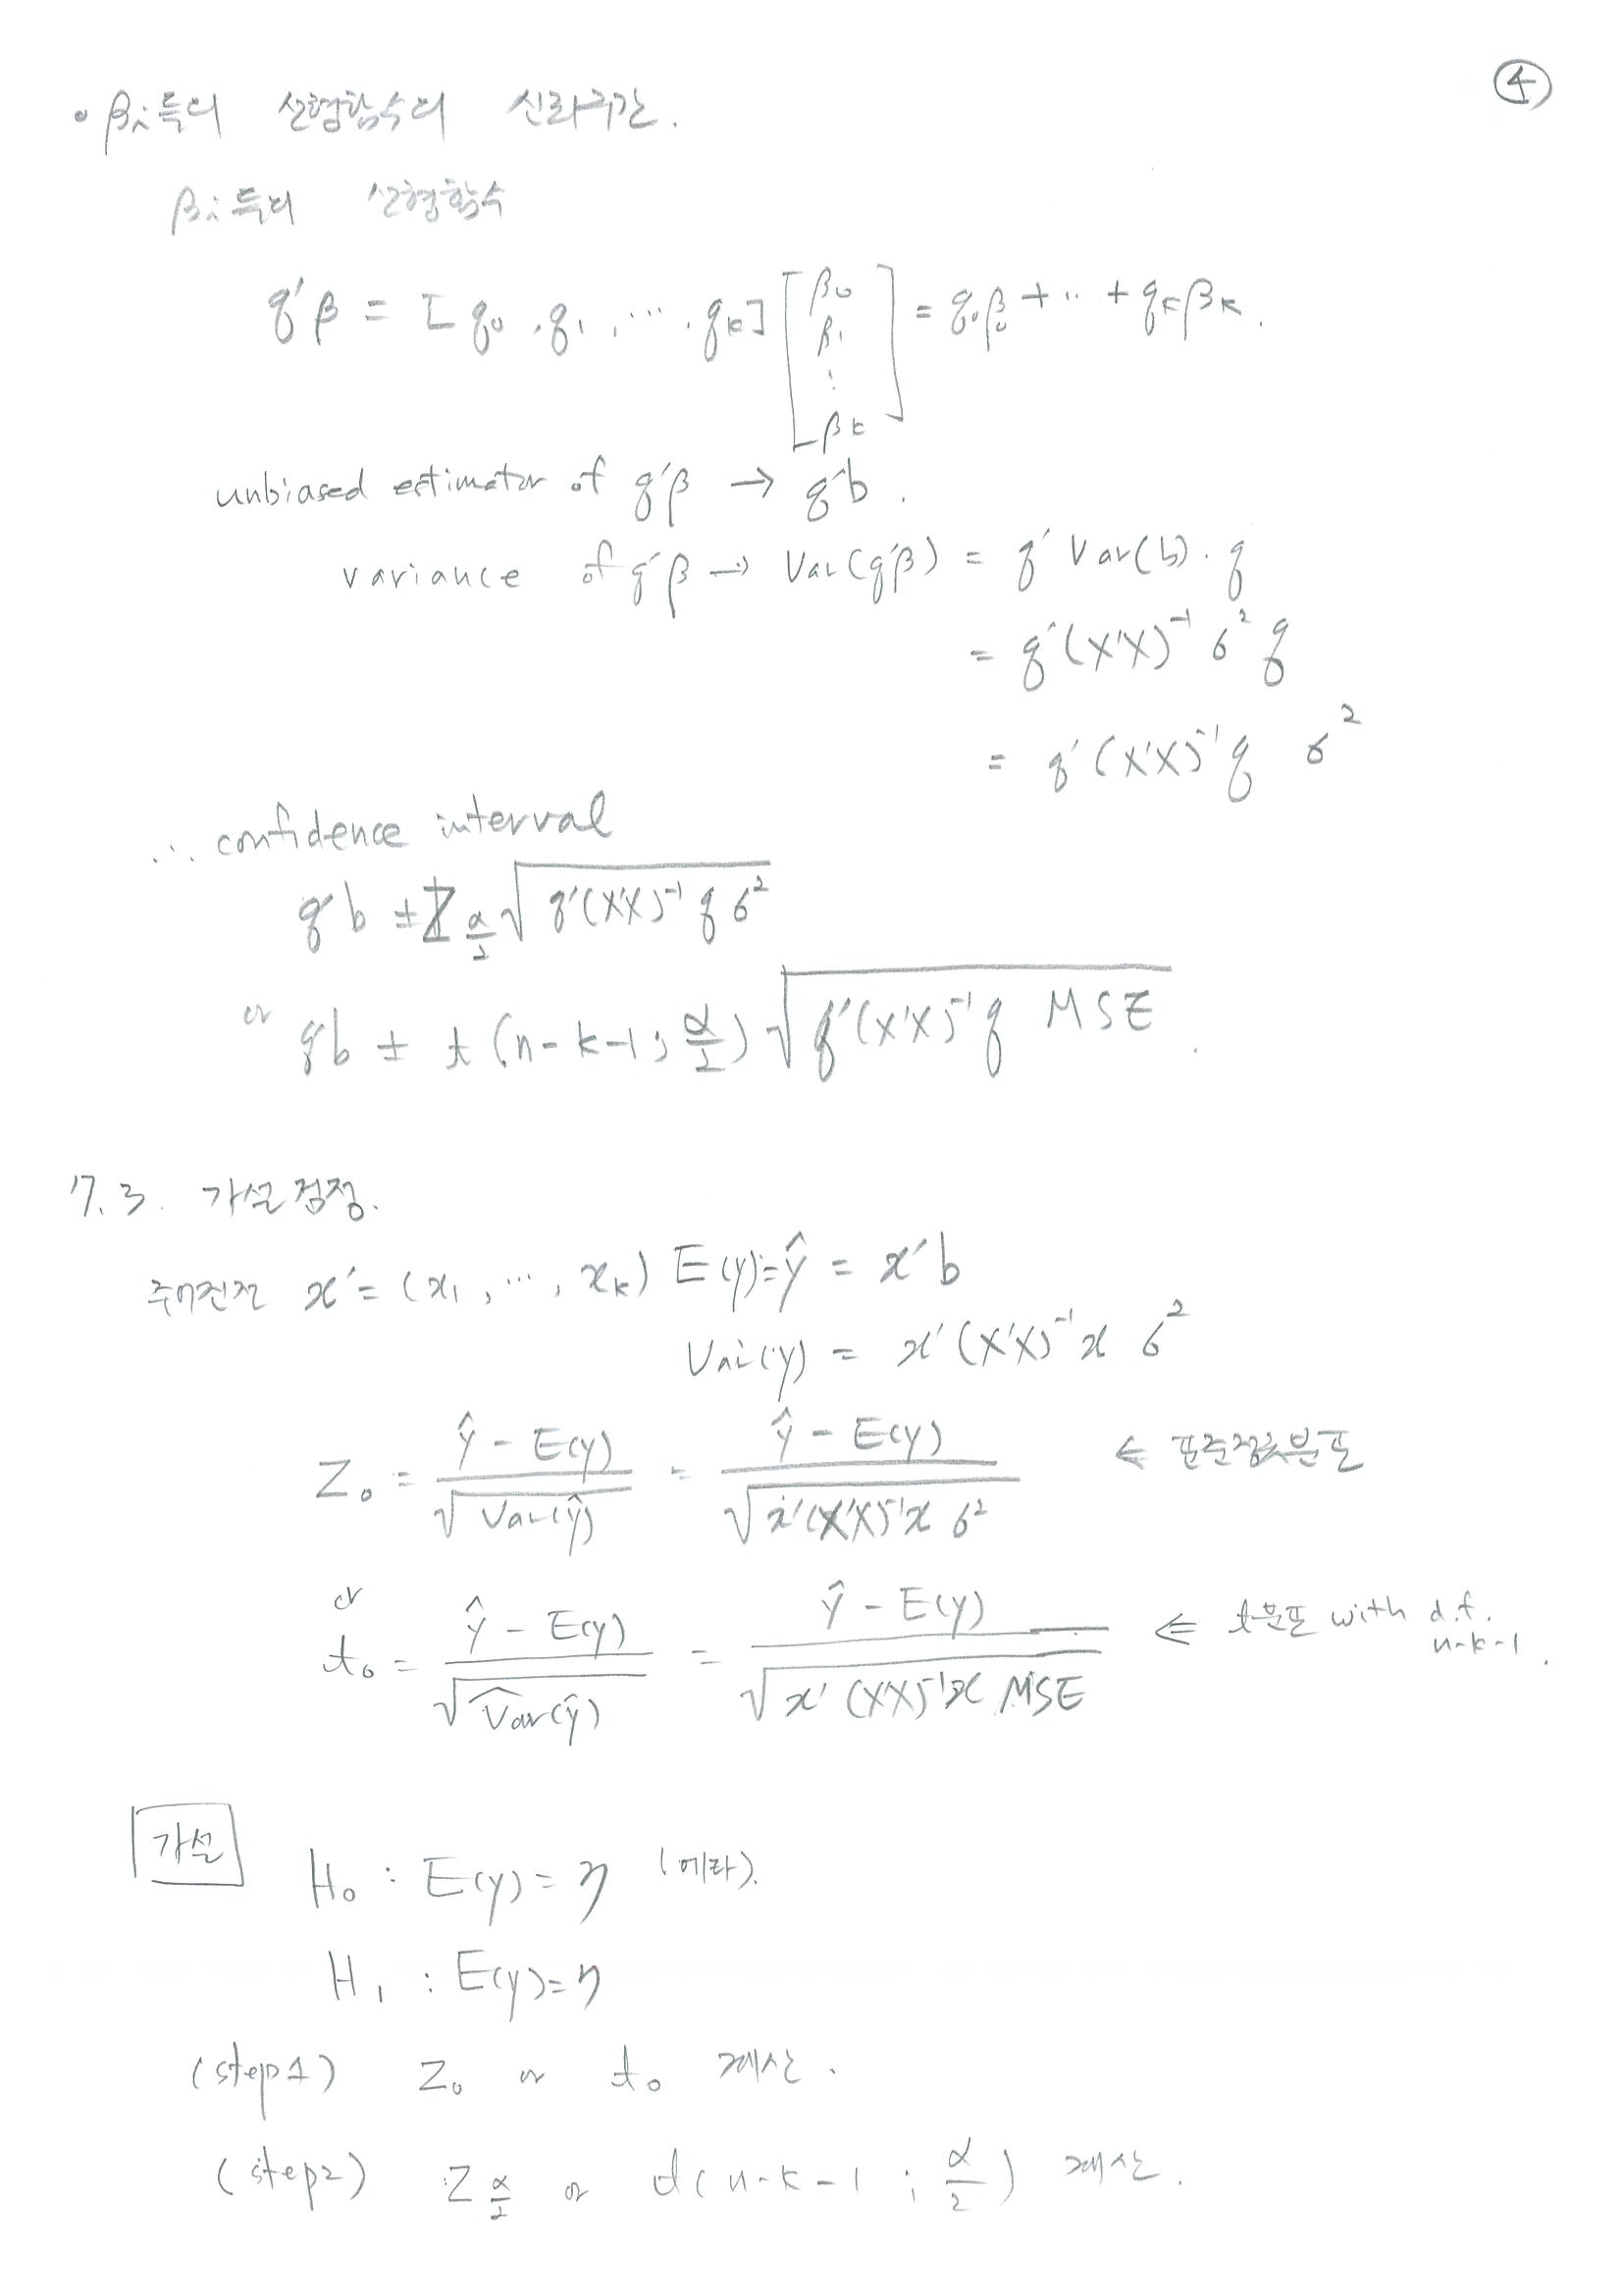 ④
• βi들의 선형함수의 신뢰구간.
βi들의 선형함수
q'β = [q0, q1, ..., qk] [β0 β1 ⋮ βk] = q0β0 + ‥ + qkβk.
unbiased estimator of q'β → q'b.
variance of q'β → Var(q'β) = q' Var(b)·q
= q'(X'X)⁻¹ σ² q
= q'(X'X)⁻¹q σ²
∴ confidence interval
q'b ± Z α/2 √(q'(X'X)⁻¹ q σ²)
or q'b ± t (n-k-1; α/2) √(q'(X'X)⁻¹q MSE).
7.3. 가설검정.
주어진 x' = (x1, ..., xk) E(y)=ŷ = x'b
Var(y) = x'(X'X)⁻¹x σ²
Z0 = (ŷ - E(y)) / √Var(ŷ) = (ŷ - E(y)) / √(x'(X'X)⁻¹x σ²) ⇐ 표준정규분포
or
t0 = (ŷ - E(y)) / √V̂ar(ŷ) = (ŷ - E(y)) / √(x'(X'X)⁻¹x MSE) ⇐ t분포 with d.f. n-k-1.
가설
H0 : E(y) = η (에타).
H1 : E(y) = η
(step1) Z0 or t0 계산.
(step2) Z α/2 or t(n-k-1 ; α/2) 계산.